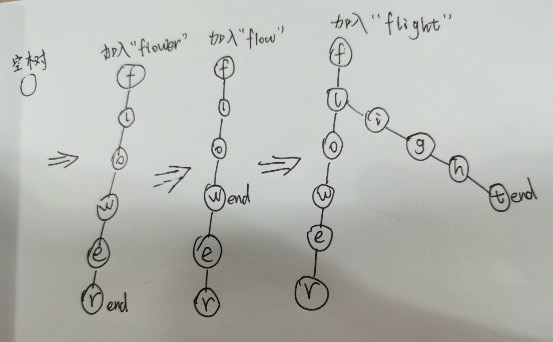 空树
加入“flower”
f
l
o
w
e
r end
加入“flow”
f
l
o
w end
e
r
加入“flight”
f
l
o
w
e
r
i
g
h
t end